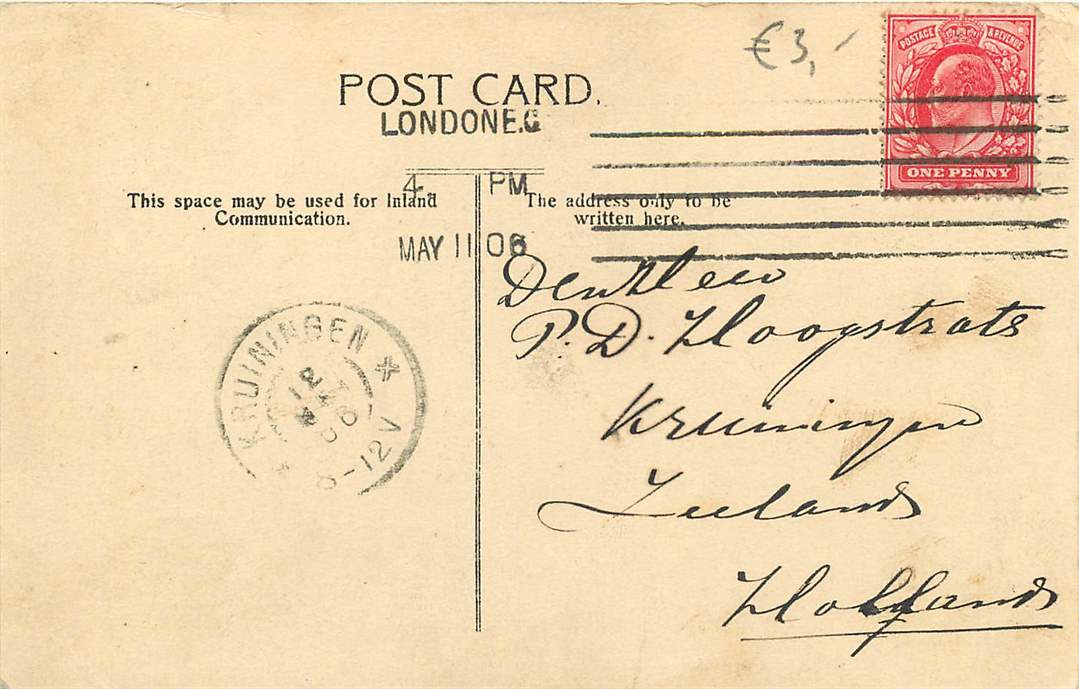 €3,-
POSTAGE & REVENUE
ONE PENNY
POST CARD.
LONDON E.C
4 PM
MAY 11 06
This space may be used for Inland
Communication.
The address only to be
written here.
Den Heer
P. D. Hoogstrats
Kruiningen
Zeeland
Holland
KRUININGEN
8-12V